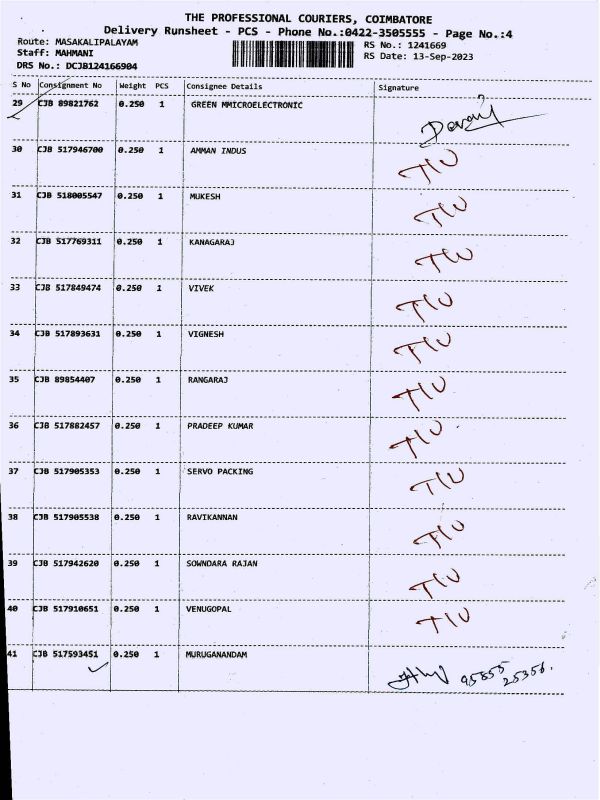 THE PROFESSIONAL COURIERS, COIMBATORE
Delivery Runsheet - PCS - Phone No.:0422-3505555 - Page No.:4
Route: MASAKALIPALAYAM
Staff: MAHMANI
DRS No.: DCJB124166904
RS No.: 1241669
RS Date: 13-Sep-2023
S No Consignment No Weight PCS Consignee Details Signature
29 CJB 89821762 0.250 1 GREEN MMICROELECTRONIC
30 CJB 517946700 0.250 1 AMMAN INDUS TIU
31 CJB 518005547 0.250 1 MUKESH TIU
32 CJB 517769311 0.250 1 KANAGARAJ TIU
33 CJB 517849474 0.250 1 VIVEK TIU
34 CJB 517893631 0.250 1 VIGNESH TIU
35 CJB 89854407 0.250 1 RANGARAJ TIU
36 CJB 517882457 0.250 1 PRADEEP KUMAR TIU
37 CJB 517905353 0.250 1 SERVO PACKING TIU
38 CJB 517905538 0.250 1 RAVIKANNAN TIU
39 CJB 517942620 0.250 1 SOWNDARA RAJAN TIU
40 CJB 517910651 0.250 1 VENUGOPAL TIU
41 CJB 517593451 0.250 1 MURUGANANDAM 95855
25356.